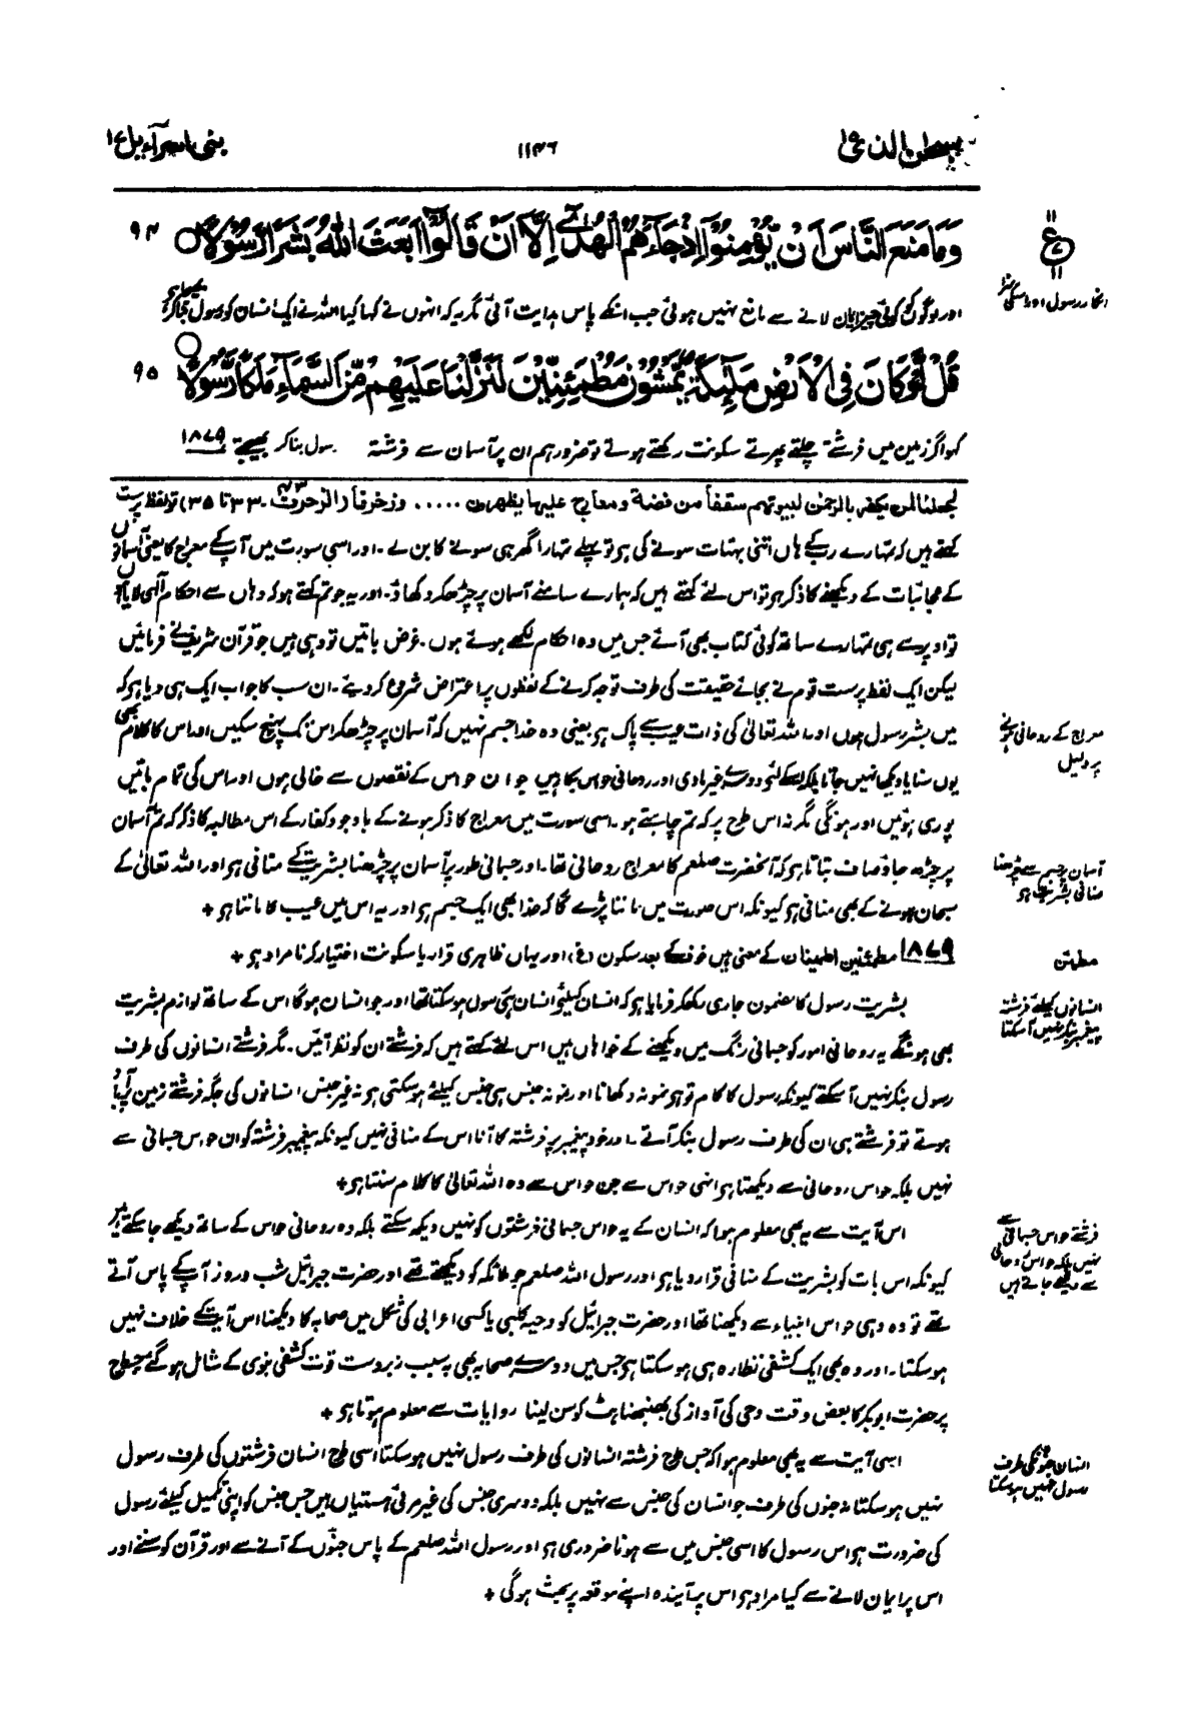 سبحٰن الذی ١٥
١١٣٦
بنی اسرآءیل ١٧
وَمَا مَنَعَ النَّاسَ اَنْ یُّؤْمِنُوْۤا اِذْ جَآءَهُمُ الْهُدٰۤی اِلَّاۤ اَنْ قَالُوْۤا اَبَعَثَ اللّٰهُ بَشَرًا رَّسُوْلًا ○ ٩٤
اور لوگوں کو کوئی چیز ایمان لانے سے مانع نہیں ہوئی جب انکے پاس ہدایت آئی مگر یہ کہ انہوں نے کہا کیا اللہ نے ایک انسان کو رسول بناکر بھیجا ہے
قُلْ لَّوْ كَانَ فِی الْاَرْضِ مَلٰٓىِٕكَةٌ یَّمْشُوْنَ مُطْمَىِٕنِّیْنَ لَنَزَّلْنَا عَلَیْهِمْ مِّنَ السَّمَآءِ مَلَكًا رَّسُوْلًا ○ ٩٥
کہو اگر زمین میں فرشتے چلتے پھرتے سکونت رکھتے ہوتے تو ضرور ہم ان پر آسمان سے فرشتہ رسول بنا کر بھیجتے ١٨٧٩
لجعلنا لمن یکفر بالرحمٰن لبیوتہم سقفاً من فضة و معارج علیہا یظہرون ..... و زخرفا (الزخرف ٤٣۔ ٣٣ تا ٣٥) تو لفظ پرست
کہتے ہیں کہ تمہارے رب کے ہاں اتنی بہتات سونے کی ہو تو پہلے تمہارا گھر ہی سونے کا بن لے۔ اور اسی سورت میں آپ کے معراج کا یعنی آسمانوں
کے عجائبات کے دیکھنے کا ذکر ہو تو اس لئے کہتے ہیں کہ ہمارے سامنے آسمان پر چڑھکر دکھاؤ۔ اور یہ جو تم کہتے ہو کہ وہاں سے احکام الٰہی لایا ہوں
تو اوپر سے ہی تمہارے ساتھ کوئی کتاب بھی آئے جس میں وہ احکام لکھے ہوئے ہوں۔ غرض باتیں تو وہی ہیں جو قرآن شریف نے فرمائیں
لیکن ایک لفظ پرست قوم نے بجائے حقیقت کی طرف توجہ کرنے کے لفظوں پر اعتراض شروع کر دیئے۔ ان سب کا جواب ایک ہی دیا ہو کہ
میں بشر رسول ہوں اور اللہ تعالیٰ کی ذات عیب سے پاک ہو یعنی وہ خدا جسم نہیں کہ آسمان پر چڑھکر اس تک پہنچ سکیں اور اس کا کلام بھی
یوں سنایا دیکھا نہیں جاتا بلکہ اسکے لئے دوسرے غیر مادی اور روحانی حواس بکار ہیں جو ان حواس کے نقصوں سے خالی ہوں اور اس کی تمام باتیں
پوری ہوئیں اور ہونگی مگر نہ اس طرح پر کہ تم چاہتے ہو۔ اسی سورت میں معراج کا ذکر ہونے کے باوجود کفار کے اس مطالبہ کا ذکر کہ تم آسمان
پر چڑھ جاؤ صاف بتاتا ہو کہ آنحضرت صلعم کا معراج روحانی تھا۔ اور جسمانی طور پر آسمان پر چڑھنا بشریت کے منافی ہو اور اللہ تعالیٰ کے
سبحان ہونے کے بھی منافی ہو کیونکہ اس صورت میں ماننا پڑے گا کہ خدا بھی ایک جسم ہو اور یہ اس میں عیب کا ماننا ہو +
١٨٧٩ مطمئنین اطمینان کے معنی ہیں خوف کے بعد سکون (غ) اور یہاں ظاہری قرار یا سکونت اختیار کرنا مراد ہو +
بشریت رسول کا مضمون جاری رکھکر فرمایا ہو کہ انسان کیلئے انسان ہی رسول ہو سکتا تھا اور جو انسان ہوگا اس کے ساتھ لوازم بشریت
بھی ہونگے یہ روحانی امور کو جسمانی رنگ میں دیکھنے کے خواہاں ہیں اس لئے کہتے ہیں کہ فرشتے ان کو نظر آئیں۔ مگر فرشتے انسانوں کی طرف
رسول بنکر نہیں آ سکتے کیونکہ رسول کا کام تو ہو نمونہ دکھانا اور نمونہ جنس ہی جنس کیلئے ہو سکتی ہو نہ غیر جنس۔ انسانوں کی جگہ فرشتے زمین پر آباد
ہوتے تو فرشتے ہی ان کی طرف رسول بنکر آتے۔ اور خود پیغمبر پر فرشتہ کا آنا اس کے منافی نہیں کیونکہ پیغمبر فرشتہ کو ان حواس جسمانی سے
نہیں بلکہ حواس روحانی سے دیکھتا ہو انہی حواس سے جن حواس سے وہ اللہ تعالیٰ کا کلام سنتا ہو +
اس آیت سے یہ بھی معلوم ہوا کہ انسان کے یہ حواس جسمانی فرشتوں کو نہیں دیکھ سکتے بلکہ وہ روحانی حواس کے ساتھ دیکھے جا سکتے ہیں
کیونکہ اس بات کو بشریت کے منافی قرار دیا ہو اور رسول اللہ صلعم جو ملائکہ کو دیکھتے تھے اور حضرت جبرائیل شب و روز آپ کے پاس آتے
تھے تو وہ وہی حواس انبیاء سے دیکھنا تھا اور حضرت جبرائیل کو دحیہ کلبی یا کسی اعرابی کی شکل میں صحابہ کا دیکھنا اس آیت کے خلاف نہیں
ہو سکتا۔ اور وہ بھی ایک کشفی نظارہ ہی ہو سکتا ہو جس میں دوسرے صحابہ بھی بہ سبب زبردست قوت کشفی نبوی کے شامل ہو گئے جس طرح
پر حضرت ابوبکر کا بعض وقت وحی کی آواز کی بھنبھناہٹ کو سن لینا روایات سے معلوم ہوتا ہو +
اسی آیت سے یہ بھی معلوم ہوا کہ جس طرح فرشتہ انسانوں کی طرف رسول نہیں ہو سکتا اسی طرح انسان فرشتوں کی طرف رسول
نہیں ہو سکتا نہ جنوں کی طرف جو انسان کی جنس سے نہیں بلکہ دوسری جنس کی غیر مرئی ہستیاں ہیں جس جنس کو اپنی تکمیل کیلئے رسول
کی ضرورت ہو اس رسول کا اسی جنس میں سے ہونا ضروری ہو اور رسول اللہ صلعم کے پاس جنوں کے آنے سے اور قرآن کو سننے اور
اس پر ایمان لانے سے کیا مراد ہو اس پر آیندہ اپنے موقعہ پر بحث ہوگی +
ع
انکار رسول اور اسکی
معراج کے روحانی ہونے
پر دلیل
آسمان پر جسم سے چڑھنا
منافی بشریت ہو
مطمئن
انسانوں کیلئے فرشتہ
پیغمبر بنکر نہیں آ سکتا
فرشتے حواس جسمانی سے
نہیں بلکہ حواس روحانی
سے دیکھے جاتے ہیں
انسان جنوں کی طرف
رسول نہیں ہو سکتا